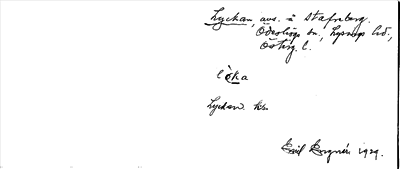 Lyckan, avs. u Stafsberg.
Ödeshögs sn, Lysings hd,
Österg. l.
lòka
Lyckan kr
Emil 1929.